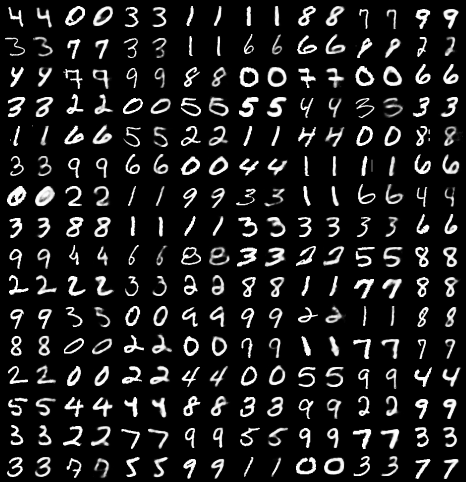 4 4 0 0 3 3 1 1 1 1 8 8 7 7 9 9
3 3 7 7 3 3 1 1 6 6 6 6 8 8 2 2
4 4 7 9 9 9 8 8 0 0 7 7 0 0 6 6
3 3 2 2 0 0 5 5 5 5 4 4 3 3 3 3
1 1 6 6 5 5 2 2 1 1 4 4 0 0 8 8
3 3 9 9 6 6 0 0 4 4 1 1 1 1 6 6
0 0 2 2 1 1 9 9 3 3 1 1 6 6 4 4
3 3 8 8 1 1 1 1 3 3 3 3 3 3 6 6
9 9 4 4 6 6 8 8 3 3 2 2 5 5 8 8
2 2 2 2 3 3 2 2 8 8 1 1 7 7 8 8
9 9 3 5 0 0 9 9 9 9 2 2 1 1 8 8
8 8 0 0 2 2 0 0 7 9 1 1 7 7 7 7
2 2 0 0 2 2 4 4 0 0 5 5 9 9 4 4
5 5 4 4 4 4 8 8 3 3 9 9 2 2 9 9
3 3 2 2 7 7 9 9 5 5 9 9 7 7 3 3
3 3 7 7 5 5 9 9 1 1 0 0 3 3 7 7